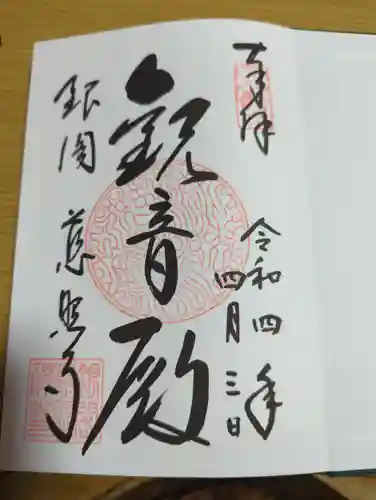 奉拝
令和四年
四月三日
観音殿
銀閣 慈照寺